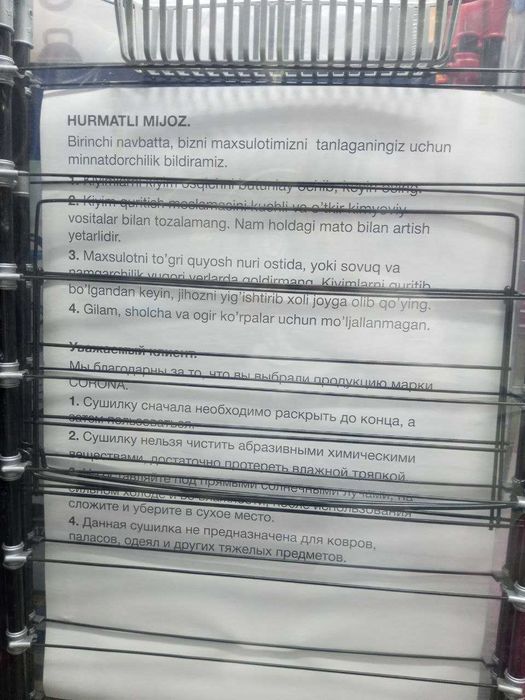 HURMATLI MIJOZ.
Birinchi navbatta, bizni maxsulotimizni tanlaganingiz uchun
minnatdorchilik bildiramiz.
1. Kiyimlarni kiyim osqichni butunlay ochib, keyin osing.
2. Kiyim quritish moslamasini kuchli va o'tkir kimyoviy
vositalar bilan tozalamang. Nam holdagi mato bilan artish
yetarlidir.
3. Maxsulotni to'gri quyosh nuri ostida, yoki sovuq va
namgarchilik yuqori yerlarda qoldirmang. Kiyimlarni quritib
bo'lgandan keyin, jihozni yig'ishtirib xoli joyga olib qo'ying.
4. Gilam, sholcha va ogir ko'rpalar uchun mo'ljallanmagan.
Уважаемый клиент.
Мы благодарны за то, что вы выбрали продукцию марки
CORONA.
1. Сушилку сначала необходимо раскрыть до конца, а
затем пользоваться.
2. Сушилку нельзя чистить абразивными химическими
веществами, достаточно протереть влажной тряпкой.
3. Не оставляйте под прямыми солнечными лучами, на
сильном холоде и во влажности, после использования
сложите и уберите в сухое место.
4. Данная сушилка не предназначена для ковров,
паласов, одеял и других тяжелых предметов.